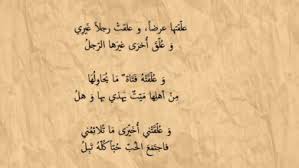 علّقتها عرضاً، و علقتْ رجلاً غيري
و عُلّق أُخرى غيرَها الرّجلُ
و عُلّقَتهُ فتاةٌ مَا يُحاولُها
مِنْ أهلِها مَيّتٌ يهذي بها وهلُ
و عُلّقتني أُخيرَى مَا تُلائمُني
فاجتَمعَ الحُبّ حُبّاً كلُّه تَبِلُ